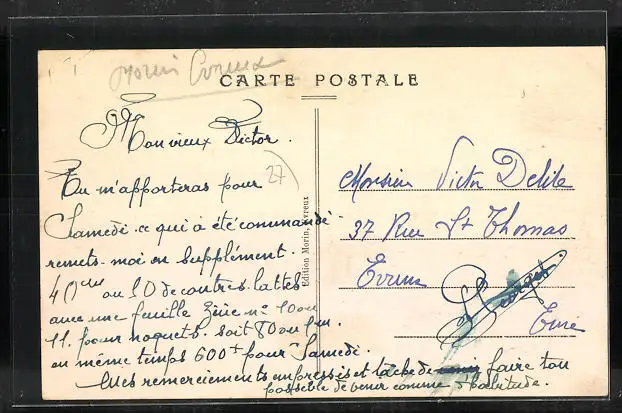 Morin Evreux
CARTE POSTALE
Mon vieux Victor.
27
Tu m'apporteras pour
Samedi ce qui a été commandé
remets-moi en supplément.
40 ou 50 de contres-lattes
avec une feuille Zinc n° 10 ou
11. pour noquets. soit 80 ou 1 m.
en même temps 600 pour Samedi.
Mes remerciements empressés et tâche de faire ton
possible de venir comme d'habitude.
Edition Morin, Evreux
Monsieur Victor Delile
37 Rue St Thomas
Evreux
Georges
Eure